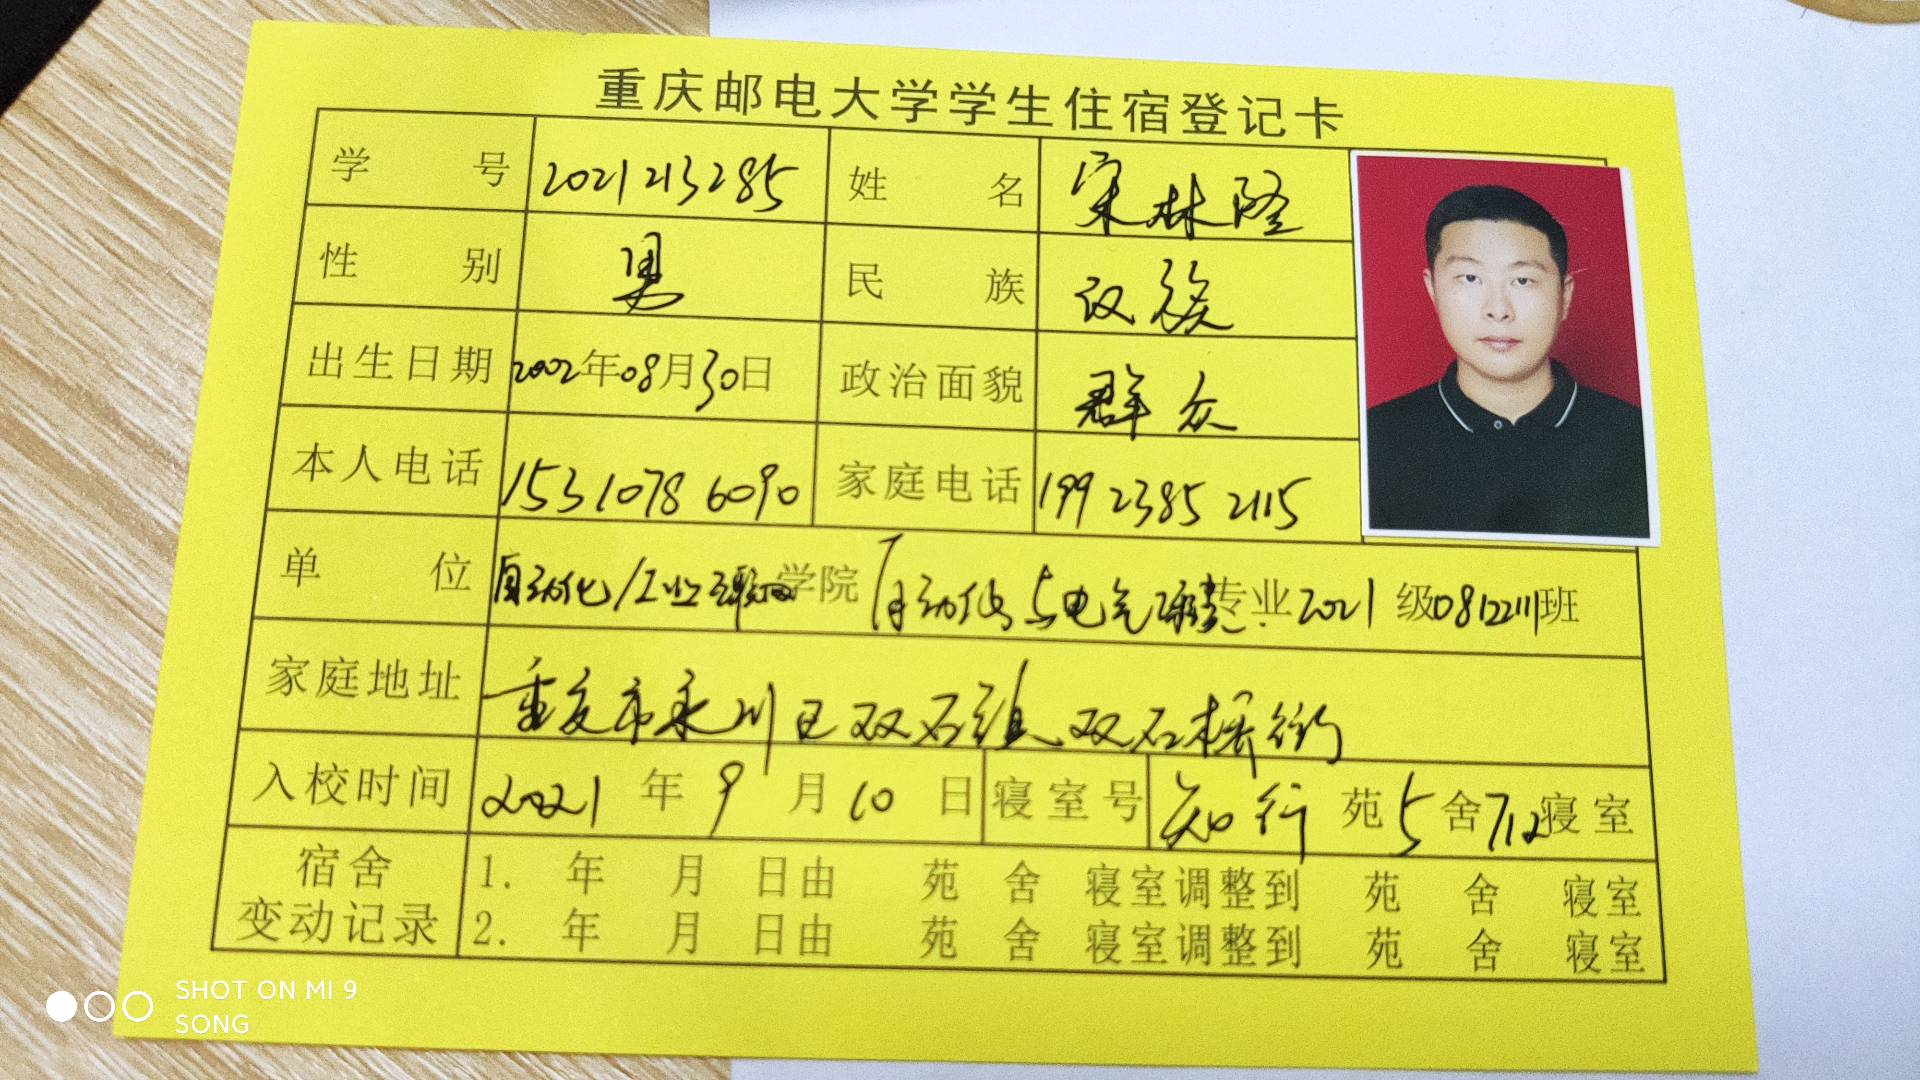 重庆邮电大学学生住宿登记卡
学号 2021213285 姓名 宋林隆
性别 男 民族 汉族
出生日期 2002年08月30日 政治面貌 群众
本人电话 153 1078 6090 家庭电话 199 2385 2115
单位 自动化/工业互联网学院 自动化与电气工程类专业 2021级08122111班
家庭地址 重庆市永川区双石镇双石桥街
入校时间 2021年9月10日 寝室号 知行苑5舍712寝室
宿舍变动记录
1. 年 月 日由 苑 舍 寝室调整到 苑 舍 寝室
2. 年 月 日由 苑 舍 寝室调整到 苑 舍 寝室
SHOT ON MI 9
SONG